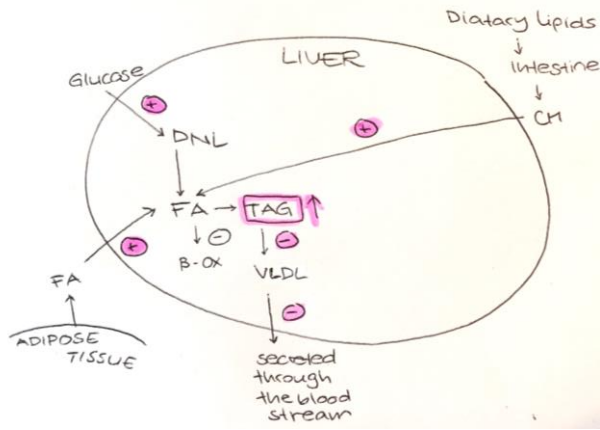 Diatary Lipids
Intestine
CM
LIVER
Glucose
+
+
DNL
FA → TAG ↑
+
-
-
β-OX
VLDL
FA
-
ADIPOSE
TISSUE
secreted
through
the blood
stream